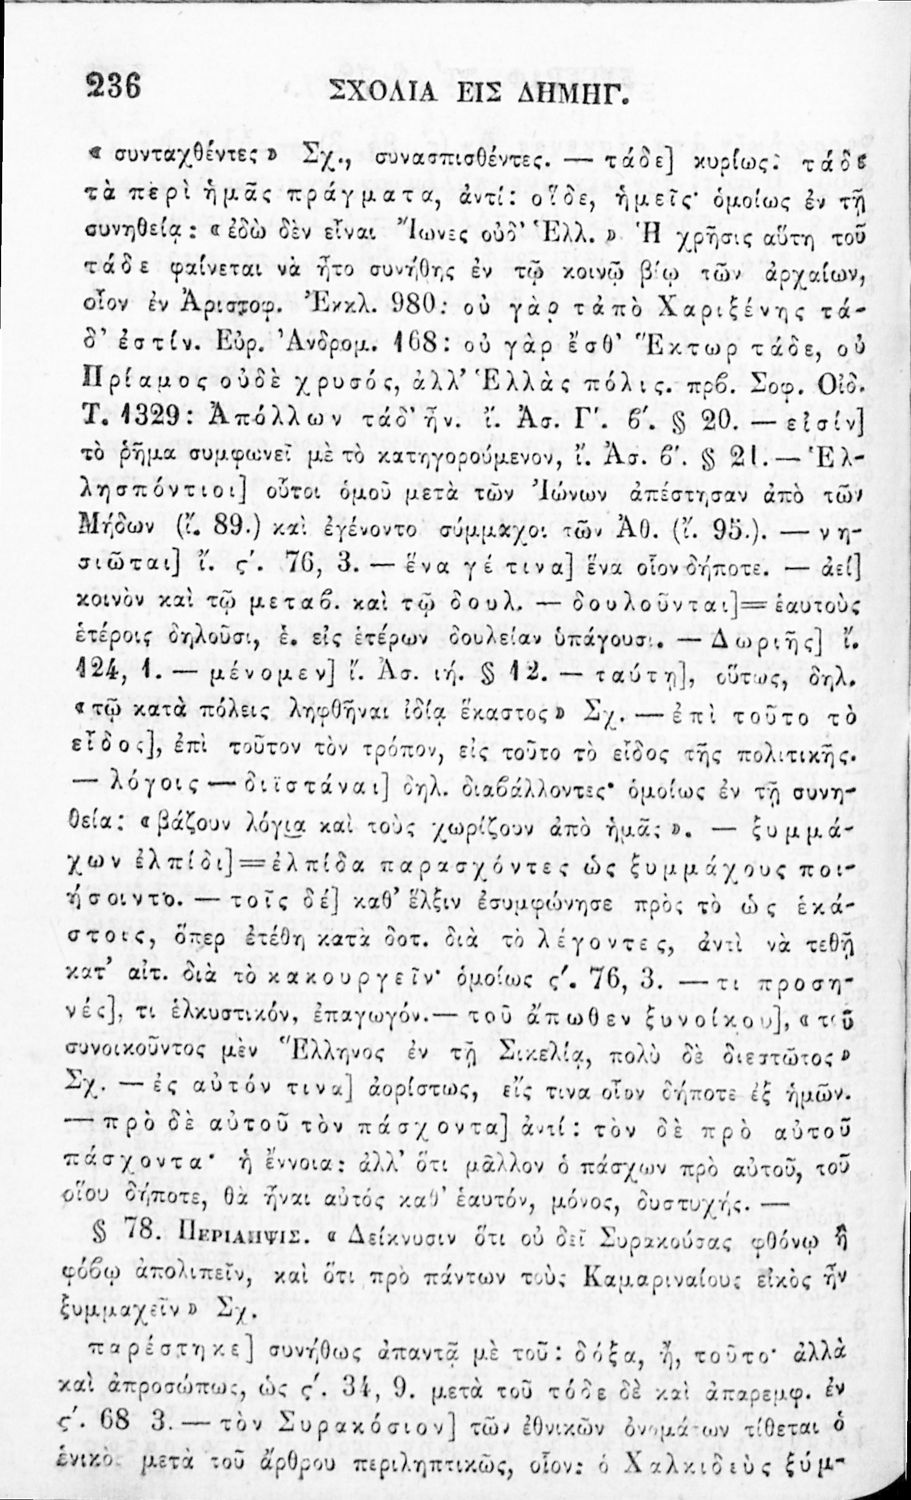 236 ΣΧΟΛΙΑ ΕΙΣ ΔΗΜΗΓ.
« συνταχθέντες » Σχ., συνασπισθέντες. — τάδε] κυρίως: τάδε
τὰ περὶ ἡμᾶς πράγματα, ἀντί: οἵδε, ἡμεῖς· ὁμοίως ἐν τῇ
συνηθείᾳ: «ἐδὼ δὲν εἶναι Ἴωνες οὐδ' Ἑλλ.» Ἡ χρῆσις αὕτη τοῦ
τάδε φαίνεται νὰ ἦτο συνήθης ἐν τῷ κοινῷ βίῳ τῶν ἀρχαίων,
οἷον ἐν Ἀριστοφ. Ἐκκλ. 980: οὐ γὰρ τἀπὸ Χαριξένης τά-
δ' ἐστίν. Εὐρ. Ἀνδρομ. 168: οὐ γὰρ ἔσθ' Ἕκτωρ τάδε, οὐ
Πρίαμος οὐδὲ χρυσός, ἀλλ' Ἑλλὰς πόλις. πρβ. Σοφ. Οἰδ.
Τ. 1329: Ἀπόλλων τάδ' ἦν. ἴ. Ἀσ. Γ'. β'. § 20. — εἰσίν]
τὸ ῥῆμα συμφωνεῖ μὲ τὸ κατηγορούμενον, ἴ. Ἀσ. β'. § 21. — Ἑλ-
λησπόντιοι] οὗτοι ὁμοῦ μετὰ τῶν Ἰώνων ἀπέστησαν ἀπὸ τῶν
Μήδων (ἴ. 89.) καὶ ἐγένοντο σύμμαχοι τῶν Ἀθ. (ἴ. 95.). — νη-
σιῶται] ἴ. ς'. 76, 3. — ἕνα γέ τινα] ἕνα οἷον δήποτε. — ἀεί]
κοινὸν καὶ τῷ μεταβ. καὶ τῷ δουλ. — δουλοῦνται]= ἑαυτοὺς
ἑτέροις δηλοῦσι, ἑ. εἰς ἑτέρων δουλείαν ὑπάγουσι. — Δωριῆς] ἴ.
124, 1. — μένομεν] ἴ. Ἀσ. ιή. § 12. — ταύτῃ], οὕτως, δηλ.
«τῷ κατὰ πόλεις ληφθῆναι ἰδίᾳ ἕκαστος» Σχ. — ἐπὶ τοῦτο τὸ
εἶδος], ἐπὶ τοῦτον τὸν τρόπον, εἰς τοῦτο τὸ εἶδος τῆς πολιτικῆς.
— λόγοις — διϊστάναι] δηλ. διαβάλλοντες· ὁμοίως ἐν τῇ συνη-
θείᾳ: «βάζουν λόγια καὶ τοὺς χωρίζουν ἀπὸ ἡμᾶς». — ξυμμά-
χων ἐλπίδι]=ἐλπίδα παρασχόντες ὡς ξυμμάχους ποι-
ήσοιντο. — τοῖς δέ] καθ' ἕλξιν ἐσυμφώνησε πρὸς τὸ ὡς ἑκά-
στοις, ὅπερ ἐτέθη κατὰ δοτ. διὰ τὸ λέγοντες, ἀντὶ νὰ τεθῇ
κατ' αἰτ. διὰ τὸ κακουργεῖν· ὁμοίως ς'. 76, 3. — τι προση-
νές], τι ἑλκυστικόν, ἐπαγωγόν. — τοῦ ἄπωθεν ξυνοίκου], «τοῦ
συνοικοῦντος μὲν Ἕλληνος ἐν τῇ Σικελίᾳ, πολὺ δὲ διεστῶτος»
Σχ. — ἐς αὐτόν τινα] ἀορίστως, εἴς τινα οἷον δήποτε ἐξ ἡμῶν.
— πρὸ δὲ αὐτοῦ τὸν πάσχοντα] ἀντί: τὸν δὲ πρὸ αὐτοῦ
πάσχοντα· ἡ ἔννοια: ἀλλ' ὅτι μᾶλλον ὁ πάσχων πρὸ αὐτοῦ, τοῦ
οἵου δήποτε, θὰ ἦναι αὐτός καθ' ἑαυτόν, μόνος, δυστυχής. —
§ 78. ΠΕΡΙΛΗΨΙΣ. « Δείκνυσιν ὅτι οὐ δεῖ Συρακούσας φθόνῳ ἢ
φόβῳ ἀπολιπεῖν, καὶ ὅτι πρὸ πάντων τοὺς Καμαριναίους εἰκὸς ἦν
ξυμμαχεῖν» Σχ.
παρέστηκε] συνήθως ἀπαντᾷ μὲ τοῦ: δόξα, ἤ, τοῦτο· ἀλλὰ
καὶ ἀπροσώπως, ὡς ς'. 34, 9. μετὰ τοῦ τόδε δὲ καὶ ἀπαρεμφ. ἐν
ς'. 68 3. — τὸν Συρακόσιον] τῶν ἐθνικῶν ὀνομάτων τίθεται ὁ
ἑνικὸς μετὰ τοῦ ἄρθρου περιληπτικῶς, οἷον: ὁ Χαλκιδεὺς ξύμ-